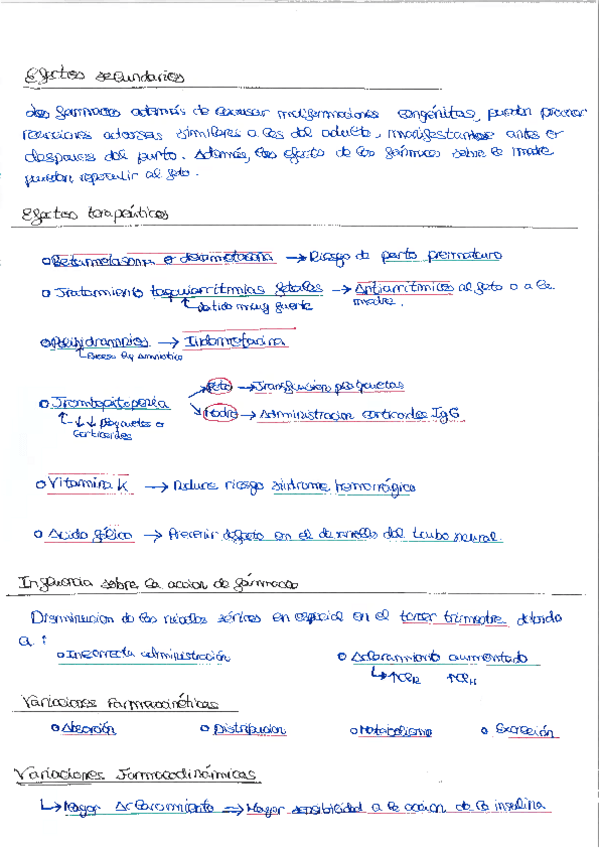 Efectos secundarios
Los fármacos además de causar malformaciones congénitas, pueden provocar
reacciones adversas similares a las del adulto, manifestantose antes o
despues del parto. Además, los efecto de los fármacos sobre la madre
pueden repercutir al feto.
Efectos terapéuticos
Betametasona o dexametasona → Riesgo de parto prematuro
Tratamiento taquiarritmias fetales → Antiarritmicos al feto o a la
↳ latido muy fuerte madre.
Polihidramnios → Indometacina
↳ Exceso liq amniotico
Feto → Transfusion plaquetas
Trombopenia
Madre → Administracion corticoides IgG
↳ ↓↓ plaquetas
corticoides
Vitamina K → Reduce riesgo síndrome hemorrágico
Acido fólico → Prevenir defecto en el desarrollo del tubo neural.
Influencia sobre la accion de fármacos
Disminucion de los niveles séricos en especial en el tercer trimestre debido
a:
Incorrecta administración Aclaramiento aumentado
↳ ↑ClR ↑ClH
Variaciones Farmacocinéticas
Absorción Distribucion Metabolismo Excreción
Variaciones Farmacodinámicas
↳ Mayor Aclaramiento ⇒ Mayor sensibilidad a la accion de la insulina